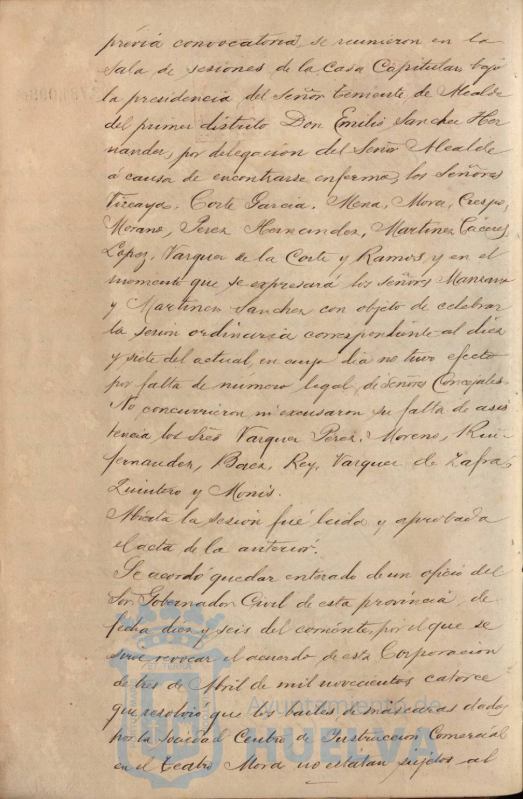 prévia convocatoria, se reunieron en la
Sala de sesiones de la Casa Capitular, bajo
la presidencia del Señor teniente de Alcalde
del primer distrito Don Emilio Sanchez Her
nandez, por delegacion del Señor Alcalde
á causa de encontrarse enfermo, los Señores
Vizcaya, Corte Garcia, Mena, Mora, Crespo,
Morano, Perez Hernandez, Martinez Cáceres,
Lopez, Vazquez de la Corte y Ramos, y en el
momento que se expresará los Señores Manzano
y Martinez Sanchez con objeto de celebrar
la sesion ordinaria correspondiente al diez
y siete del actual, en cuyo dia no tuvo efecto
por falta de número legal de Señores Concejales.
No concurrieron ni excusaron su falta de asis
tencia los Sres Vazquez Perez, Moreno, Ruiz
fernandez, Baez, Rey, Vazquez de Zafra,
Quintero y Monis.
Abierta la sesión fué leida y aprobada
el acta de la anterior.
Se acordó quedar enterado de un oficio del
Sor Gobernador Civil de esta provincia, de
fecha diez y seis del corriente, por el que se
sirve revocar el acuerdo de esta Corporacion
de tres de Abril de mil novecientos catorce
que resolvió que los bailes de máscaras dados
por la Sociedad Centro de Instruccion Comercial
en el teatro Mora no estaban sujetos al
Ayuntamiento de
HUELVA